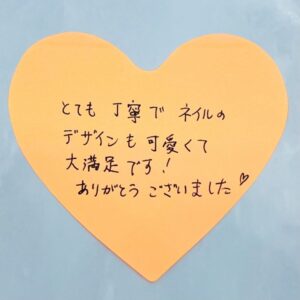 とても 丁寧で ネイルの
デザインも可愛くて
大満足です!
ありがとう ございました♡